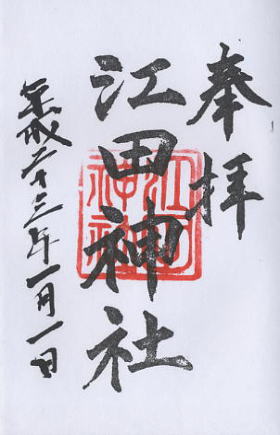 奉拝
江田神社
平成二十三年一月一日
江田神社